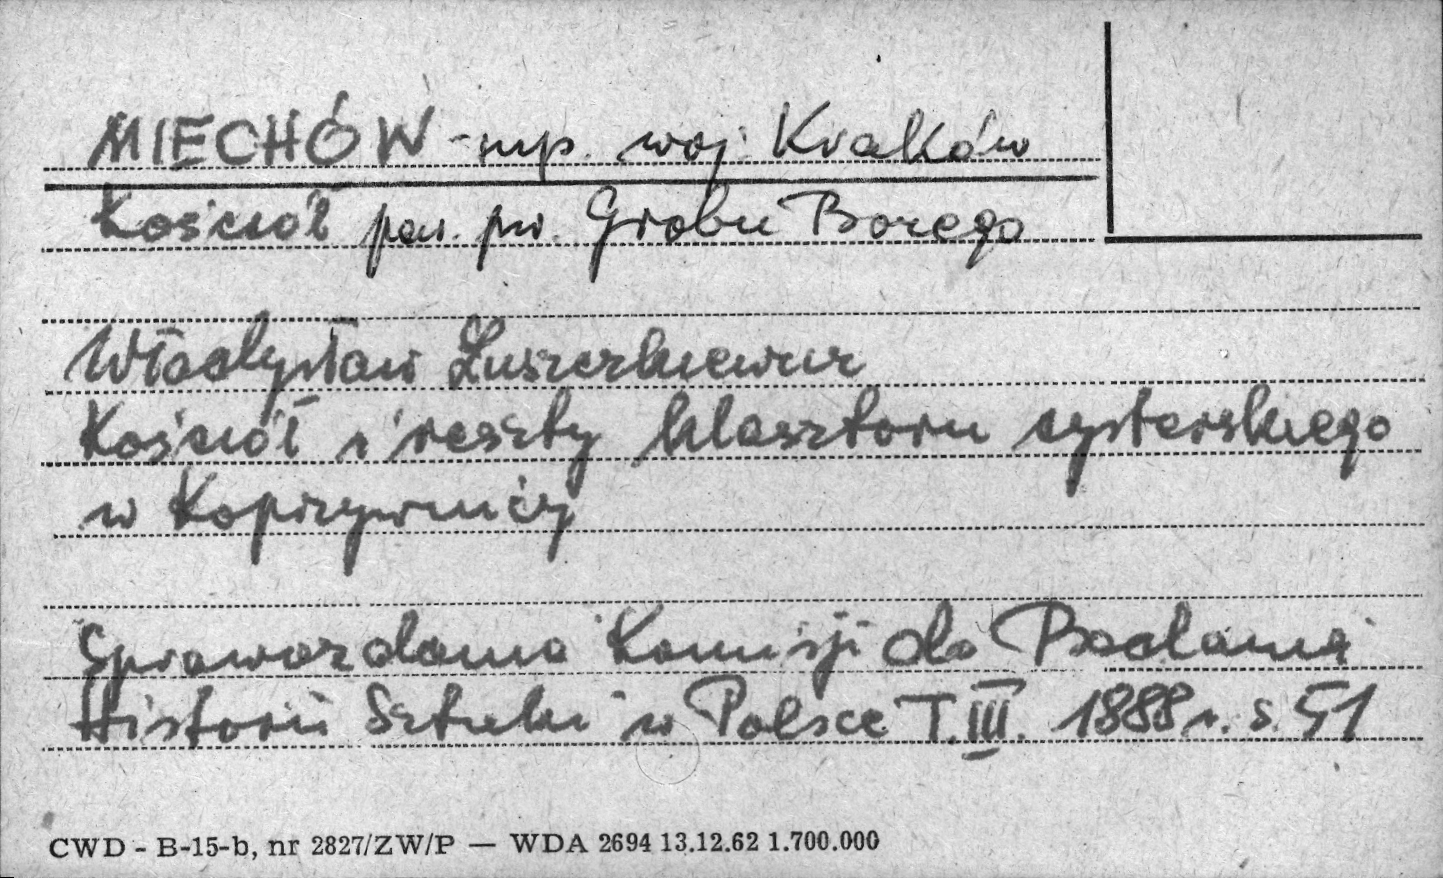 MIECHÓW - mp. woj. Kraków
Kościół par. pw. Grobu Bożego
Władysław Łuszczkiewicz
Kościół i reszty klasztoru cysterskiego
w Koprzywnicy
Sprawozdania Komisji do Badania
Historii Sztuki w Polsce T. III. 1888 r. s. 51
CWD - B-15-b, nr 2827/ZW/P — WDA 2694 13.12.62 1.700.000